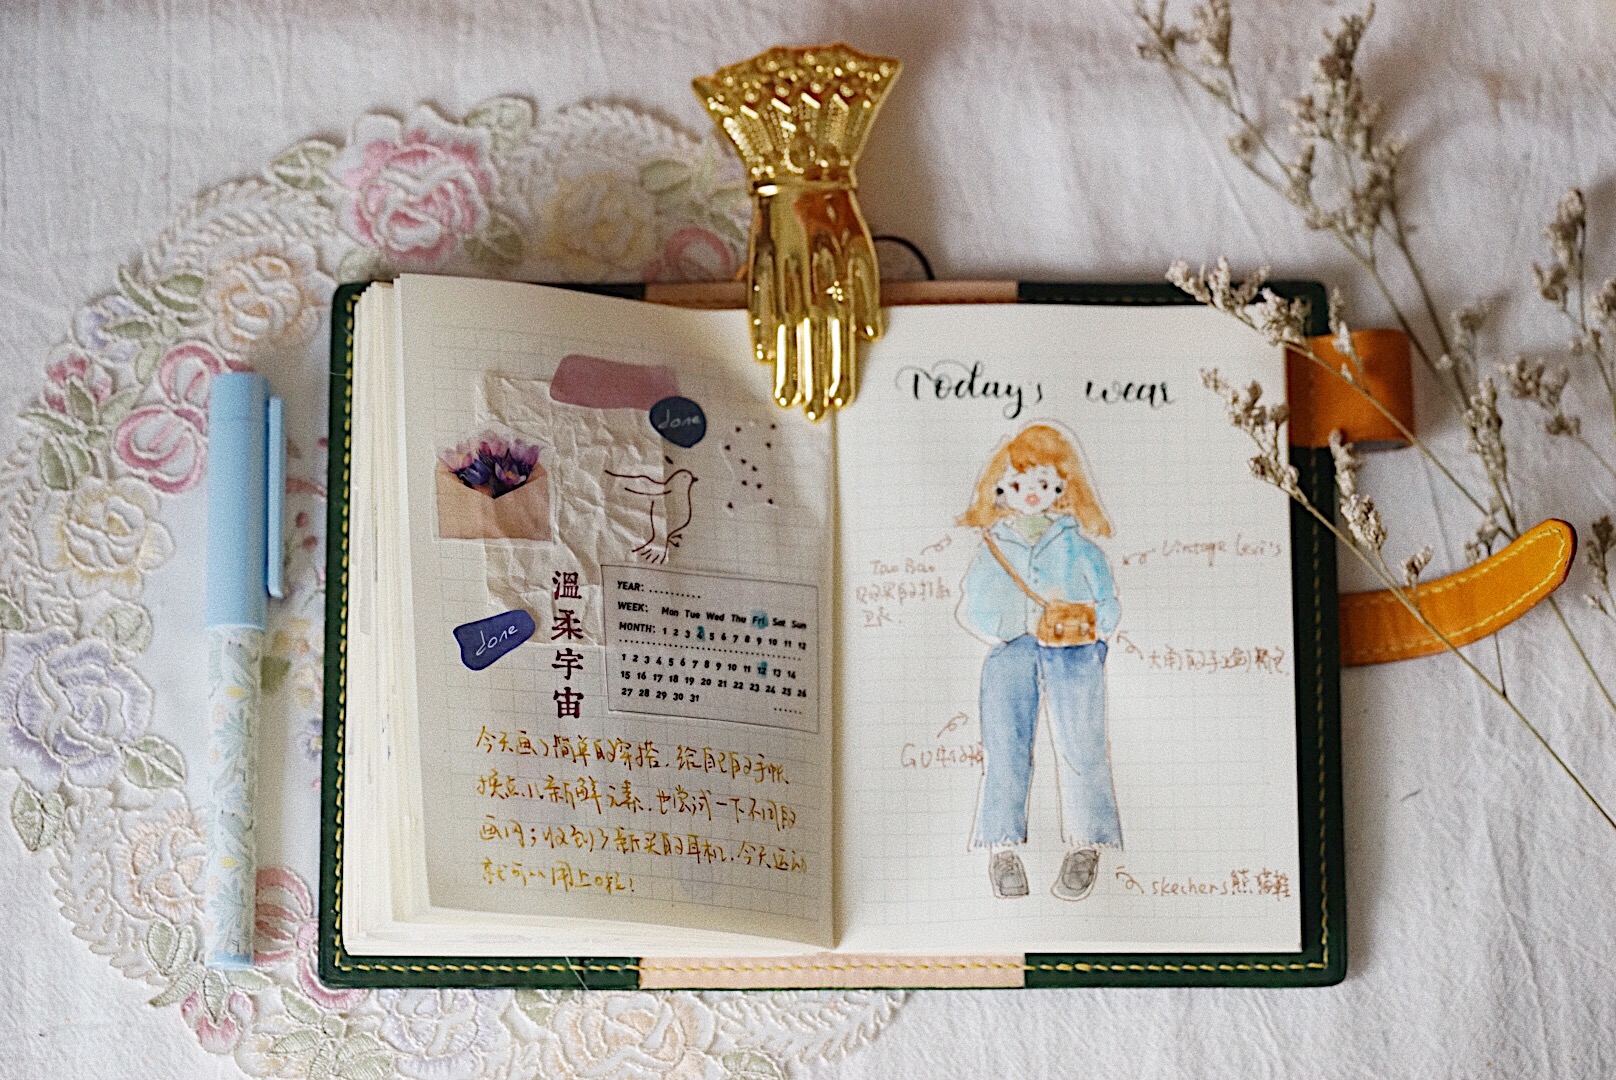 done
done
溫柔宇宙
YEAR: ..........
WEEK: Mon Tue Wed Thu Fri Sat Sun
MONTH: 1 2 3 4 5 6 7 8 9 10 11 12
1 2 3 4 5 6 7 8 9 10 11 12 13 14
15 16 17 18 19 20 21 22 23 24 25 26
27 28 29 30 31
今天画了简单的穿搭，给自己的手帐
换点儿新鲜元素，也尝试一下不同的
画风；收到了新买的耳机，今天运动
就可以用上啦！
Today's wear
Tao Bao
Vintage Levi's
GU牛仔裤
skechers熊猫鞋